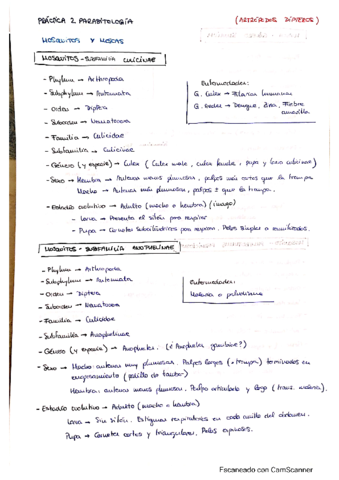 PRÁCTICA 2 PARASITOLOGÍA
(ARTRÓPODOS DÍPTEROS)
MOSQUITOS Y MOSCAS
MOSQUITOS - SUBFAMILIA CULICINAE
- Phyllum → Arthropoda
- Subphyllum → Antennata
- Orden → Diptera
- Suborden → Nematocera
- Familia → Culicidae
- Subfamilia → Culicinae
Enfermedades:
G. Culex → Filarias
G. Aedes → Dengue, Zika, Fiebre
amarilla
- Género (y especie) → Culex (Culex male, culex female, pupa y larva culicinae)
- Sexo → Hembra → Antenas menos plumosas, palpos más cortos que la trompa
Macho → Antenas más plumosas, palpos ± que la trompa.
- Estadío evolutivo → Adulto (macho o hembra) (imago)
- Larva → Presenta el sifón para respirar
- Pupa → Cornetes Pelos simples o ramificados.
MOSQUITOS - SUBFAMILIA ANOPHELINAE
- Phyllum → Arthropoda
- Subphyllum → Antennata
- Orden → Diptera
- Suborden → Nematocera
- Familia → Culicidae
- Subfamilia → Anophelinae
Enfermedades:
Malaria o paludismo
- Género (y especie) → Anopheles. (¿Anopheles gambiae?)
- Sexo → Macho: antenas muy plumosas. Palpos largos (= trompa) terminados en
engrosamiento (palillo de tambor)
Hembra: antenas menos plumosas. Palpo articulado y largo
- Estadío evolutivo → Adulto (macho o hembra)
Larva → Sin sifón. Estigmas respiratorios en cada anillo del abdomen.
Pupa → Cornetes cortos y triangulares. Pelos espinosos.
Escaneado con CamScanner